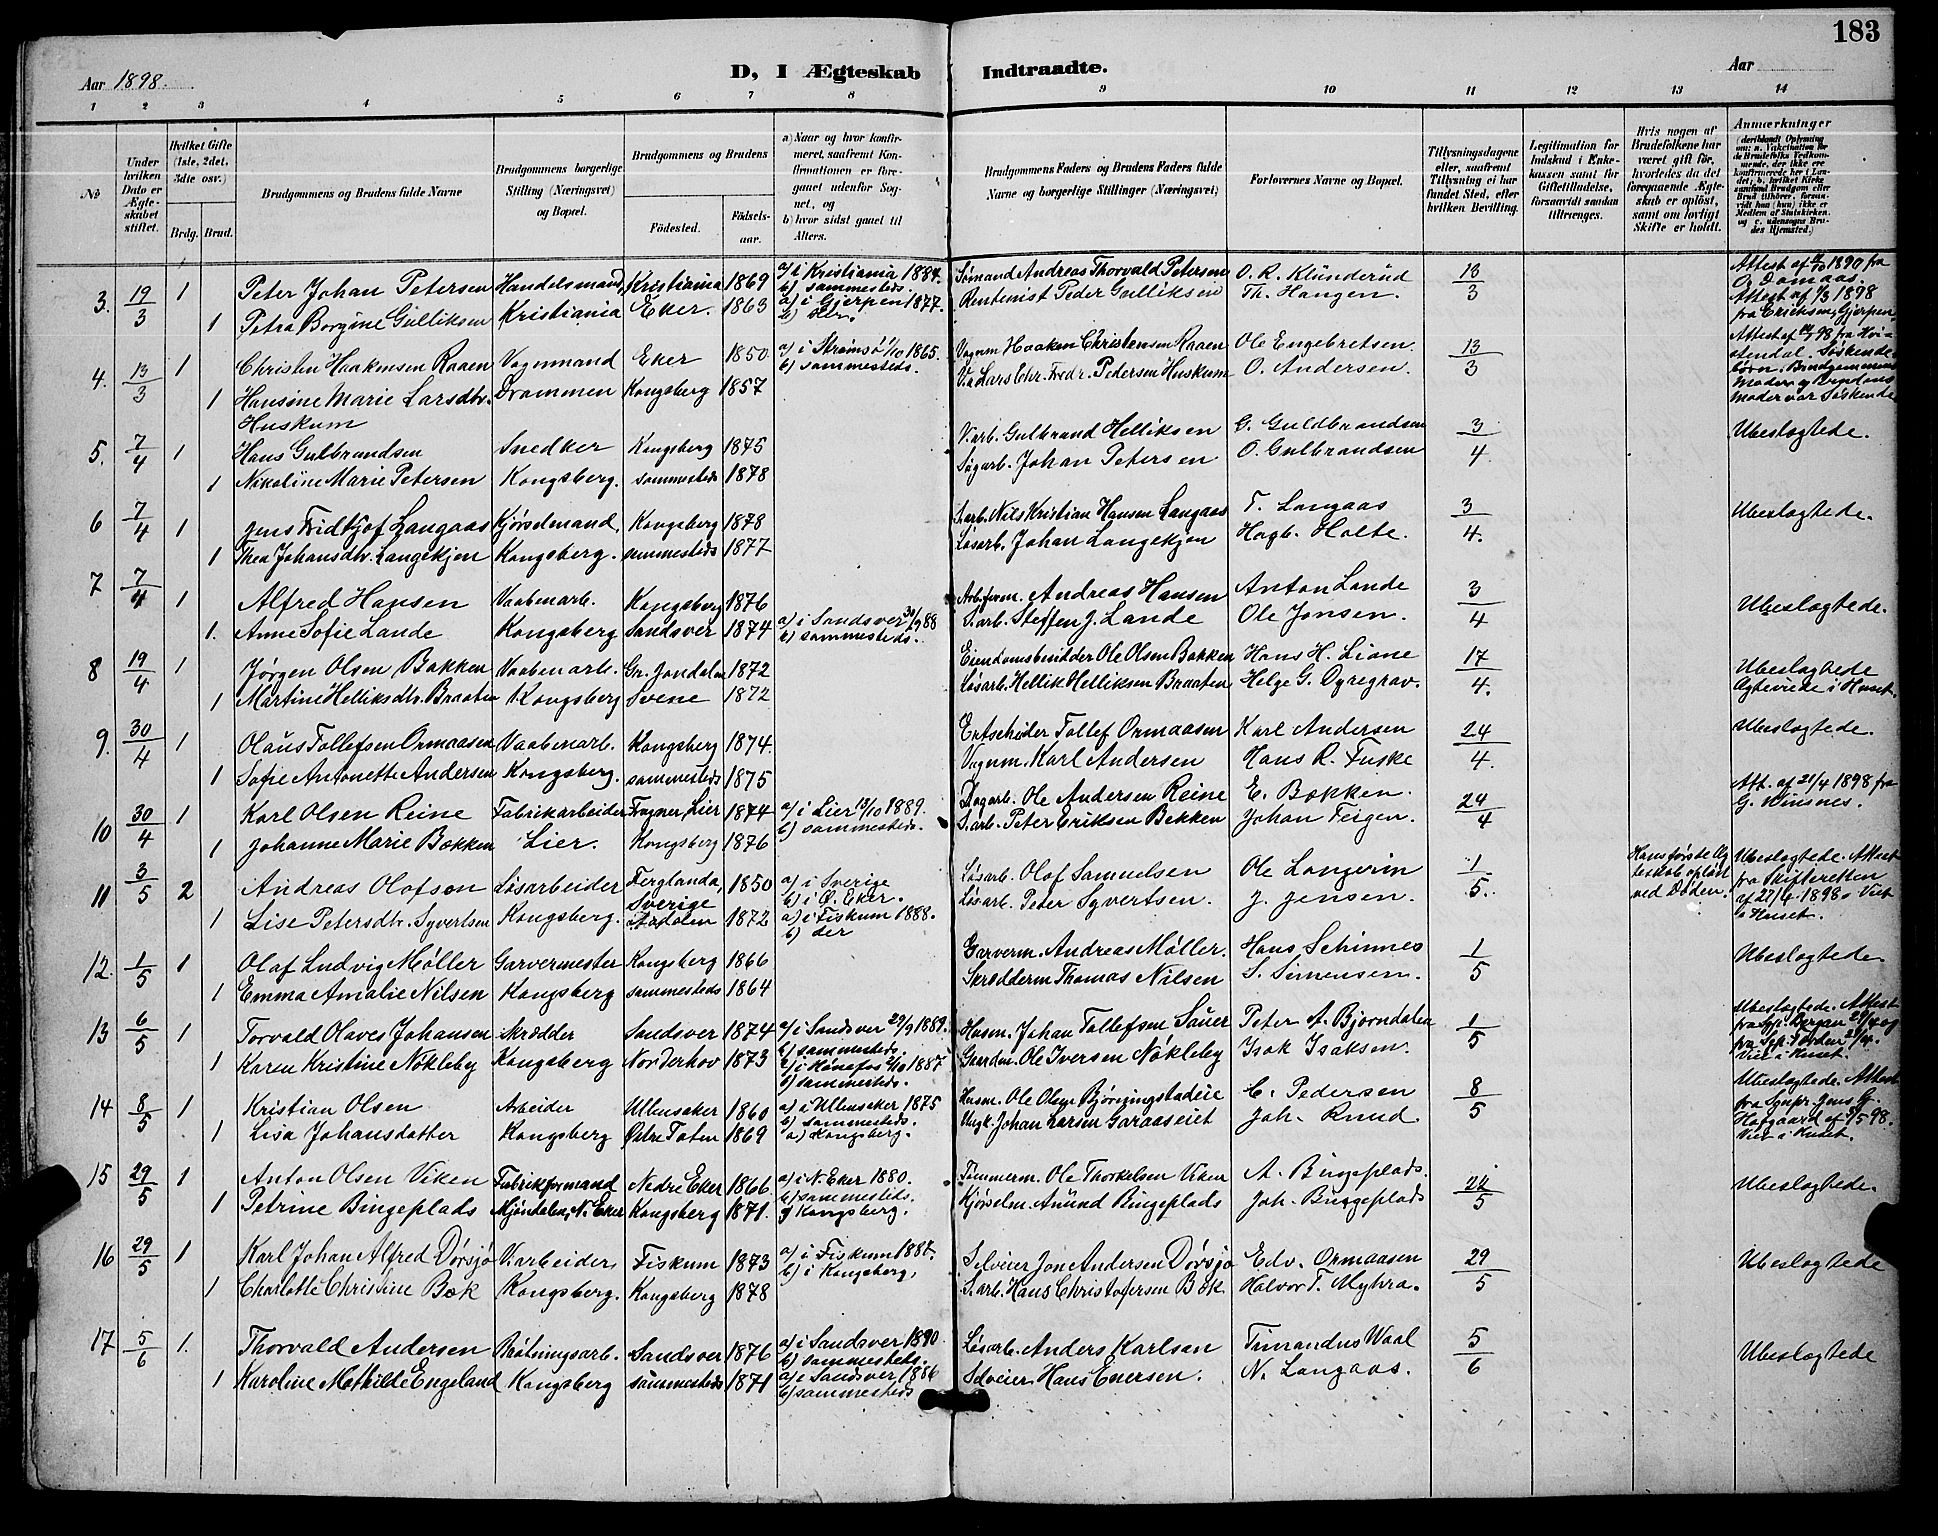 183
Aar 1898.
D, I Ægteskab Indtraadte.
Aar
1 2 3 4 5 6 7 8 9 10 11 12 13 14
No
Under hvilken Dato er Ægteskabet stiftet.
Hvilket Gifte (1ste, 2det, 3die osv.)
Brdg. Brud.
Brudgommens og Brudens fulde Navne
Brudgommens borgerlige Stilling (Næringsvei) og Bopæl.
Brudgommens og Brudens
Fødested. Fødselsaar.
a) Naar og hvor konfirmeret, saafremt Konfirmationen er foregaaet udenfor Sognet, og
b) hvor sidst gaaet til Alters.
Brudgommens Faders og Brudens Faders fulde Navne og borgerlige Stillinger (Næringsvei)
Forlovernes Navne og Bopæl.
Tillysningsdagene eller, saafremt Tillysning ei har fundet Sted, efter hvilken Bevilling.
Legitimation for Indskud i Enkekassen samt for Giftetilladelse, forsaavidt saadan tiltrænges.
Hvis nogen af Brudefolkene har været gift før, hvorledes da det foregaaende Ægteskab er opløst, samt om lovligt Skifte er holdt.
Anmærkninger
3. 19/3 1 Peter Johan Petersen Handelsmand, Kristiania 1869 a/ i Kristiania 1884. b/ sammesteds. Sømand Andreas Thorvald Petersen O. R. Klunderud 13/3
1 Petra Borgine Gulliksen Kristiania Eker. 1863 a) i Gjerpen 1877. Rentenist Peder Gulliksen Th. Haugen.
Attest af 1898 fra Eriksen, Gjerpen
4. 13/3 1 Christen Haakensen Raaen Vognmand Eker 1850 a/ i Strømsø 1/10 1865. b/ sammesteds. Vognm. Haaken Christensen Raaen Ole Engebretsen. 13/3
1 Hansine Marie Larsdtr. Huskum Drammen Kongsberg 1857 Lars Chr. Fredr. Pedersen Huskum O. Andersen.
Søskendebørn. Brudgommens Moder og Brudens Moder var Søskende
5. 7/4 1 Hans Gulbrandsen Snedker Kongsberg 1875 V.arb. Gulbrand Helliksen G. Guldbrandsen 3/4 Ubeslægtede.
1 Nikoline Marie Petersen Kongsberg. sammesteds 1878 Sagarb. Johan Petersen O. Gulbrandsen
6 7/4 1 Jens Fridtjof Langaas Kjørselmand, Kongsberg 1878 S.arb. Nils Kristian Hansen Langaas T. Langaas 3/4. Ubeslægtede.
1 Thea Johansdtr. Langekjen Kongsberg. sammesteds 1877 Løsarb. Johan Langekjen Hagb. Holte.
7 7/4 1 Alfred Hansen Vaabenarb. Kongsberg 1876 Arb.form. Andreas Hansen Anton Lande 3/4 Ubeslægtede.
1. Anne Sofie Lande Kongsberg Sandsver 1874 a/ i Sandsver 30/9 88 b/ sammesteds. S.arb. Steffen J. Lande Ole Jonsen.
8 19/4 1 Jørgen Olsen Bakken Vaabenarb. Gr. Jondalen 1872 Eiendomsbesidder Ole Olsen Bakken Hans H. Liane 17/4. Ubeslægtede
1 Martine Helliksdtr. Braaten Kongsberg Svene 1872 Løsarb. Hellik Helliksen Braaten Helge G. Ogregrav. Ægteviede i Huset.
9. 30/4 1 Olaus Tollefsen Ormaasen Vaabenarb. Kongsberg 1874. Ertscheider Tollef Ormaasen Karl Andersen 24/4. Ubeslægtede.
1 Sofie Antonette Andersen Kongsberg. sammesteds 1875 Vognm. Karl Andersen Hans R. Fuske
10 30/4 1 Karl Olsen Reine Fabrikarbeider Fragner, Lier 1874 a/ i Lier 13/10 1889. b/ sammesteds. Dagarb. Ole Andersen Reine E. Bækken. 24/4 Att. af 21/4 1898 fra G. Winsnes.
1 Johanne Marie Bækken Lier. Kongsberg 1876 S.arb. Peter Eriksen Bekken Johan Fergen.
11 3/5 2 Andreas Olafson Løsarbeider Ferglanda, Sverige 1850 a/ i Sverige b/ i Ø. Eker. Løsarb. Olof Samuelsen Ole Langerim 1/5. Hans første Ægteskab opløst ved Døden. Ubeslægtede. Attest fra Skifteretten af 21/4 1898. Viet i Huset.
1 Lise Petersdtr. Syvertsen Kongsberg. 1872 a) i Fiskum 1888. b) der Løsarb. Peter Syvertsen. J. Jensen.
12. 1/5 1 Olaf Ludvig Møller Garvermester Kongsberg 1866 Garverm. Andreas Møller. Hans Schinnes 1/5 Ubeslægtede
1 Emma Amalie Nilsen Kongsberg sammesteds 1864 Skrædderm Thomas Nilsen S. Simensen.
13 6/5 1 Torvald Olaves Johansen Skrædder Sandsver 1874 a/ i Sandsver 29/9 1889. b/ sammesteds Husm. Johan Tollefsen Sauer Peter A. Bjørndalen 1/5 Ubeslægtede. Attest
1 Karen Kristine Nøkleby Kongsberg Norderhov 1873 a/ i Hønefos 2/10 1887 b/ sammesteds. Gaardm. Ole Iversen Nøkleby Isak Isaksen. Viet i Huset.
14 8/5 1 Kristian Olsen Arbeider Ullensaker 1860 a) i Ullensaker 1875 b) sammesteds. Husm. Ole Olsen Bjørningstadeie C. Pedersen 8/5 Ubeslægtede. Attest fra Sgnpr. Jens G. Hofgaard
1 Lisa Johansdatter Kongsberg Østre Toten 1869 a) Kongsberg. Johan Larsen Garaaseiet Joh. Knud Viet i Huset.
15 29/5 1 Anton Olsen Viken Fabrikformand Nedre Eker 1866 a/ i N. Eker 1880. b/ sammesteds. Tømmerm. Ole Thorkelsen Viken A. Bingeplads. 22/5 Ubeslægtede.
1 Petrine Bingeplads Mjøndalen, N. Eker Kongsberg 1871. Kongsberg. Kjørselm. Amund Bingeplads Joh. Bingeplads
16 29/5 1 Karl Johan Alfred Dørsjø V.arbeider, Fiskum 1873 a/ i Fiskum 1887. b/ i Kongsberg, Selveier Jon Andersen Dørsjø Edv. Ormaasen 29/5 Ubeslægtede
1 Charlotte Christine Bæk Kongsberg. Kongsberg 1878 S.arb. Hans Christofersen Bæk Halvor T. Myhra.
17 5/6 1. Thorvald Andersen Brøtningsarb. Sandsver 1876 a/ i Sandsver 1890 b/ sammesteds. Løsarb. Anders Karlsen Timandus Waal 5/6 Ubeslægtede
1 Karoline Mathilde Engeland Kongsberg sammesteds 1871 a/ i Sandsver 1886 b/ sammesteds Selveier Hans Enersen. N. Langaas.